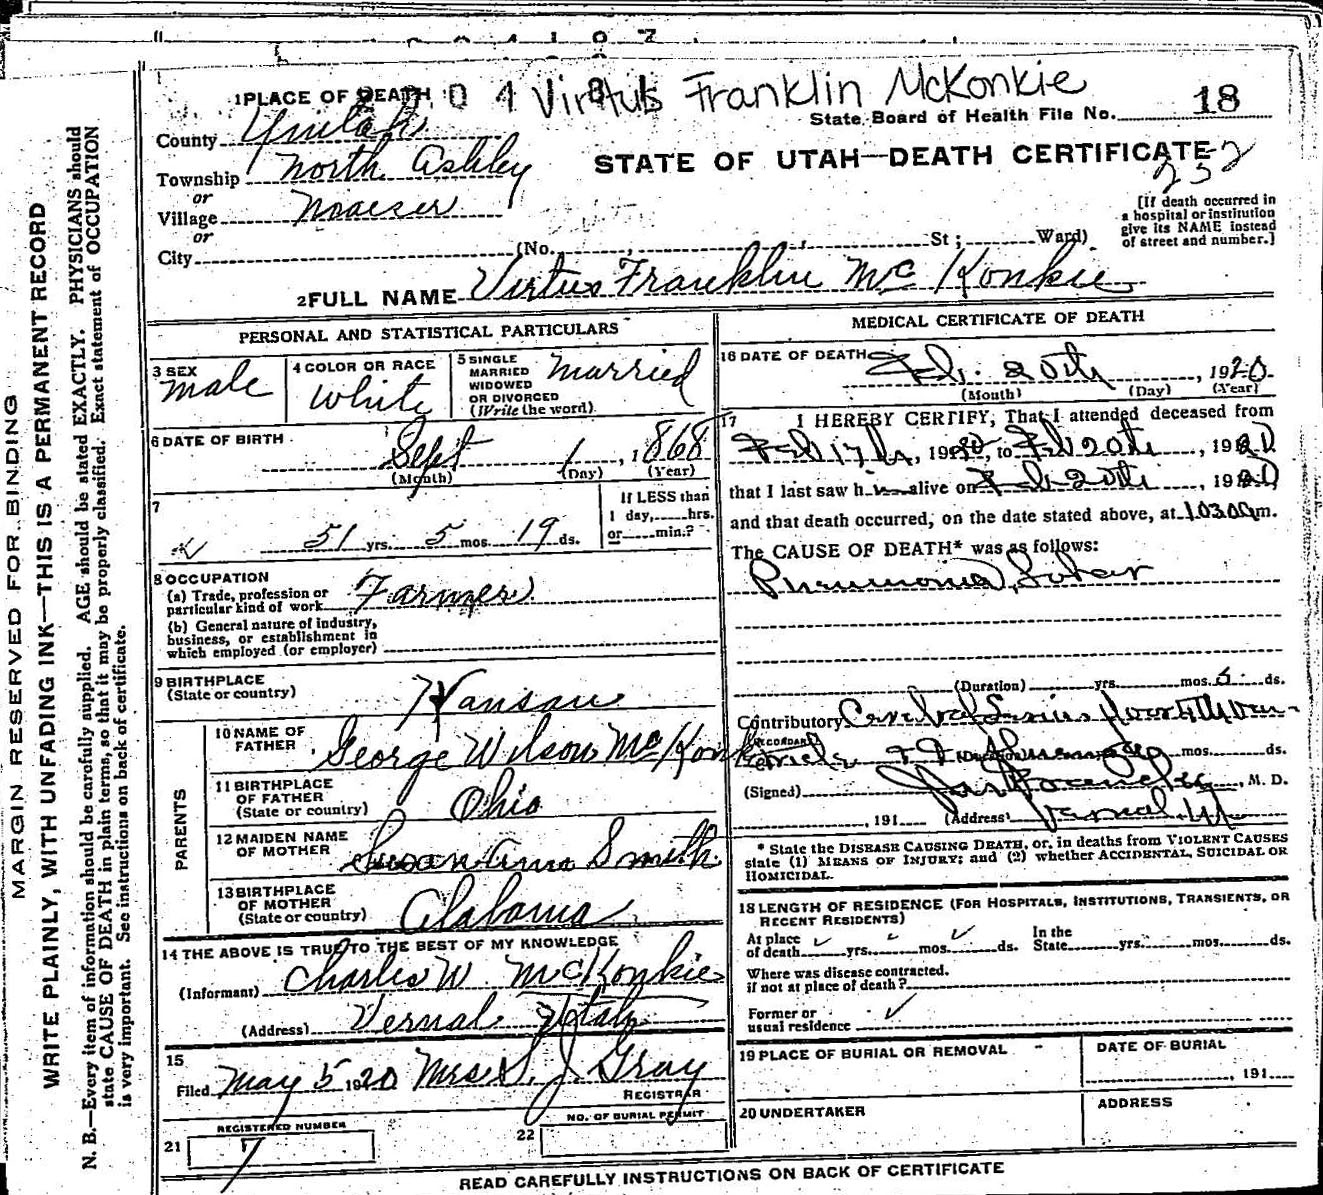 Virtus Franklin McKonkie
1 PLACE OF DEATH
State Board of Health File No. 18
County Uintah
STATE OF UTAH—DEATH CERTIFICATE
252
Township North Ashley
or
Village Maeser
or
City (No. , , St; Ward)
[If death occurred in
a hospital or institution
give its NAME instead
of street and number.]
2 FULL NAME Virtus Franklin McKonkie
PERSONAL AND STATISTICAL PARTICULARS
3 SEX
Male
4 COLOR OR RACE
White
5 SINGLE
MARRIED
WIDOWED
OR DIVORCED
(Write the word)
Married
6 DATE OF BIRTH
Sept 1, 1868
(Month) (Day) (Year)
7
51 yrs. 5 mos. 19 ds.
If LESS than
1 day, hrs.
or min.?
8 OCCUPATION
(a) Trade, profession or
particular kind of work Farmer
(b) General nature of industry,
business, or establishment in
which employed (or employer)
9 BIRTHPLACE
(State or country) Kansas
PARENTS
10 NAME OF
FATHER George Wilson McKonkie
11 BIRTHPLACE
OF FATHER
(State or country) Ohio
12 MAIDEN NAME
OF MOTHER Susan Ann Smith
13 BIRTHPLACE
OF MOTHER
(State or country) Alabama
14 THE ABOVE IS TRUE TO THE BEST OF MY KNOWLEDGE
(Informant) Charles W McKonkie
(Address) Vernal Utah
15
Filed May 5 1920 Mrs S. J. Gray
REGISTRAR
REGISTERED NUMBER
21 7
NO. OF BURIAL PERMIT
22
MEDICAL CERTIFICATE OF DEATH
16 DATE OF DEATH
Feb. 20th, 1920
(Month) (Day) (Year)
17 I HEREBY CERTIFY, That I attended deceased from
Feb 17th, 1920, to Feb 20th, 1920
that I last saw him alive on Feb 20th, 1920
and that death occurred, on the date stated above, at 10300 m.
The CAUSE OF DEATH* was as follows:
Pneumonia, Lobar
(Duration) yrs. mos. 5 ds.
Contributory
(SECONDARY)
mos. ds.
(Signed) , M. D.
, 191 (Address) Vernal, Ut
* State the DISEASE CAUSING DEATH, or, in deaths from VIOLENT CAUSES
state (1) MEANS OF INJURY; and (2) whether ACCIDENTAL, SUICIDAL OR
HOMICIDAL.
18 LENGTH OF RESIDENCE (FOR HOSPITALS, INSTITUTIONS, TRANSIENTS, OR
RECENT RESIDENTS)
At place
of death yrs. mos. ds.
In the
State yrs. mos. ds.
Where was disease contracted.
if not at place of death?
Former or
usual residence
19 PLACE OF BURIAL OR REMOVAL
DATE OF BURIAL
, 191
20 UNDERTAKER
ADDRESS
READ CAREFULLY INSTRUCTIONS ON BACK OF CERTIFICATE
MARGIN RESERVED FOR BINDING
WRITE PLAINLY, WITH UNFADING INK—THIS IS A PERMANENT RECORD
N. B.—Every item of information should be carefully supplied. AGE should be stated EXACTLY. PHYSICIANS should
state CAUSE OF DEATH in plain terms, so that it may be properly classified. Exact statement of OCCUPATION
is very important. See instructions on back of certificate.